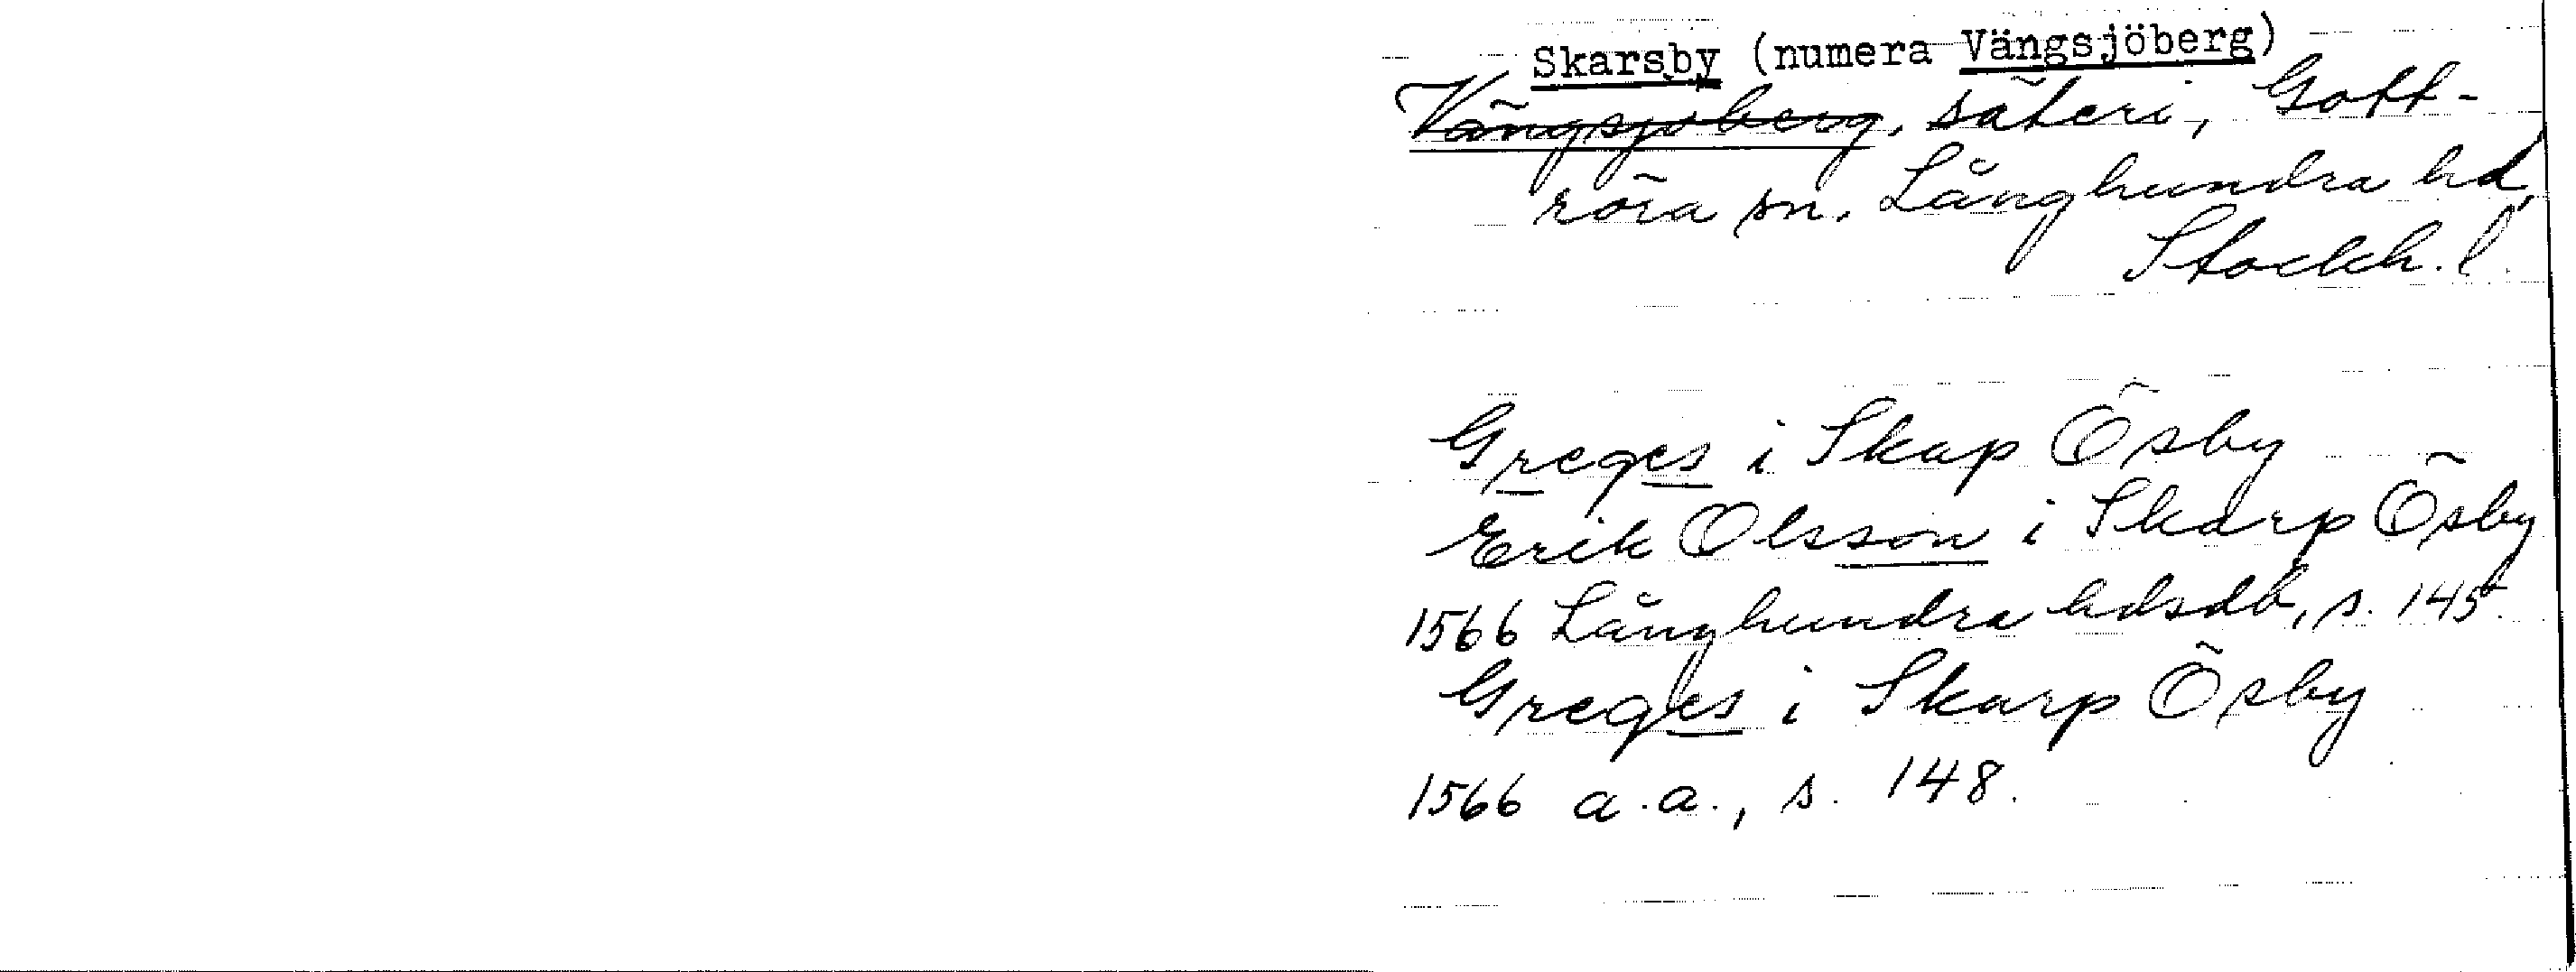 Skarsby (numera Vängsjöberg)
Vängsjöberg, säteri, Gott-
röra sn. Långhundra hd,
Stockh. l.
Greges i Skap Ösby
Erik Olsson i Skarp Ösby
1566 Långhundra hdsdb, s. 145.
Greges i Skarp Ösby
1566 a.a., s. 148.